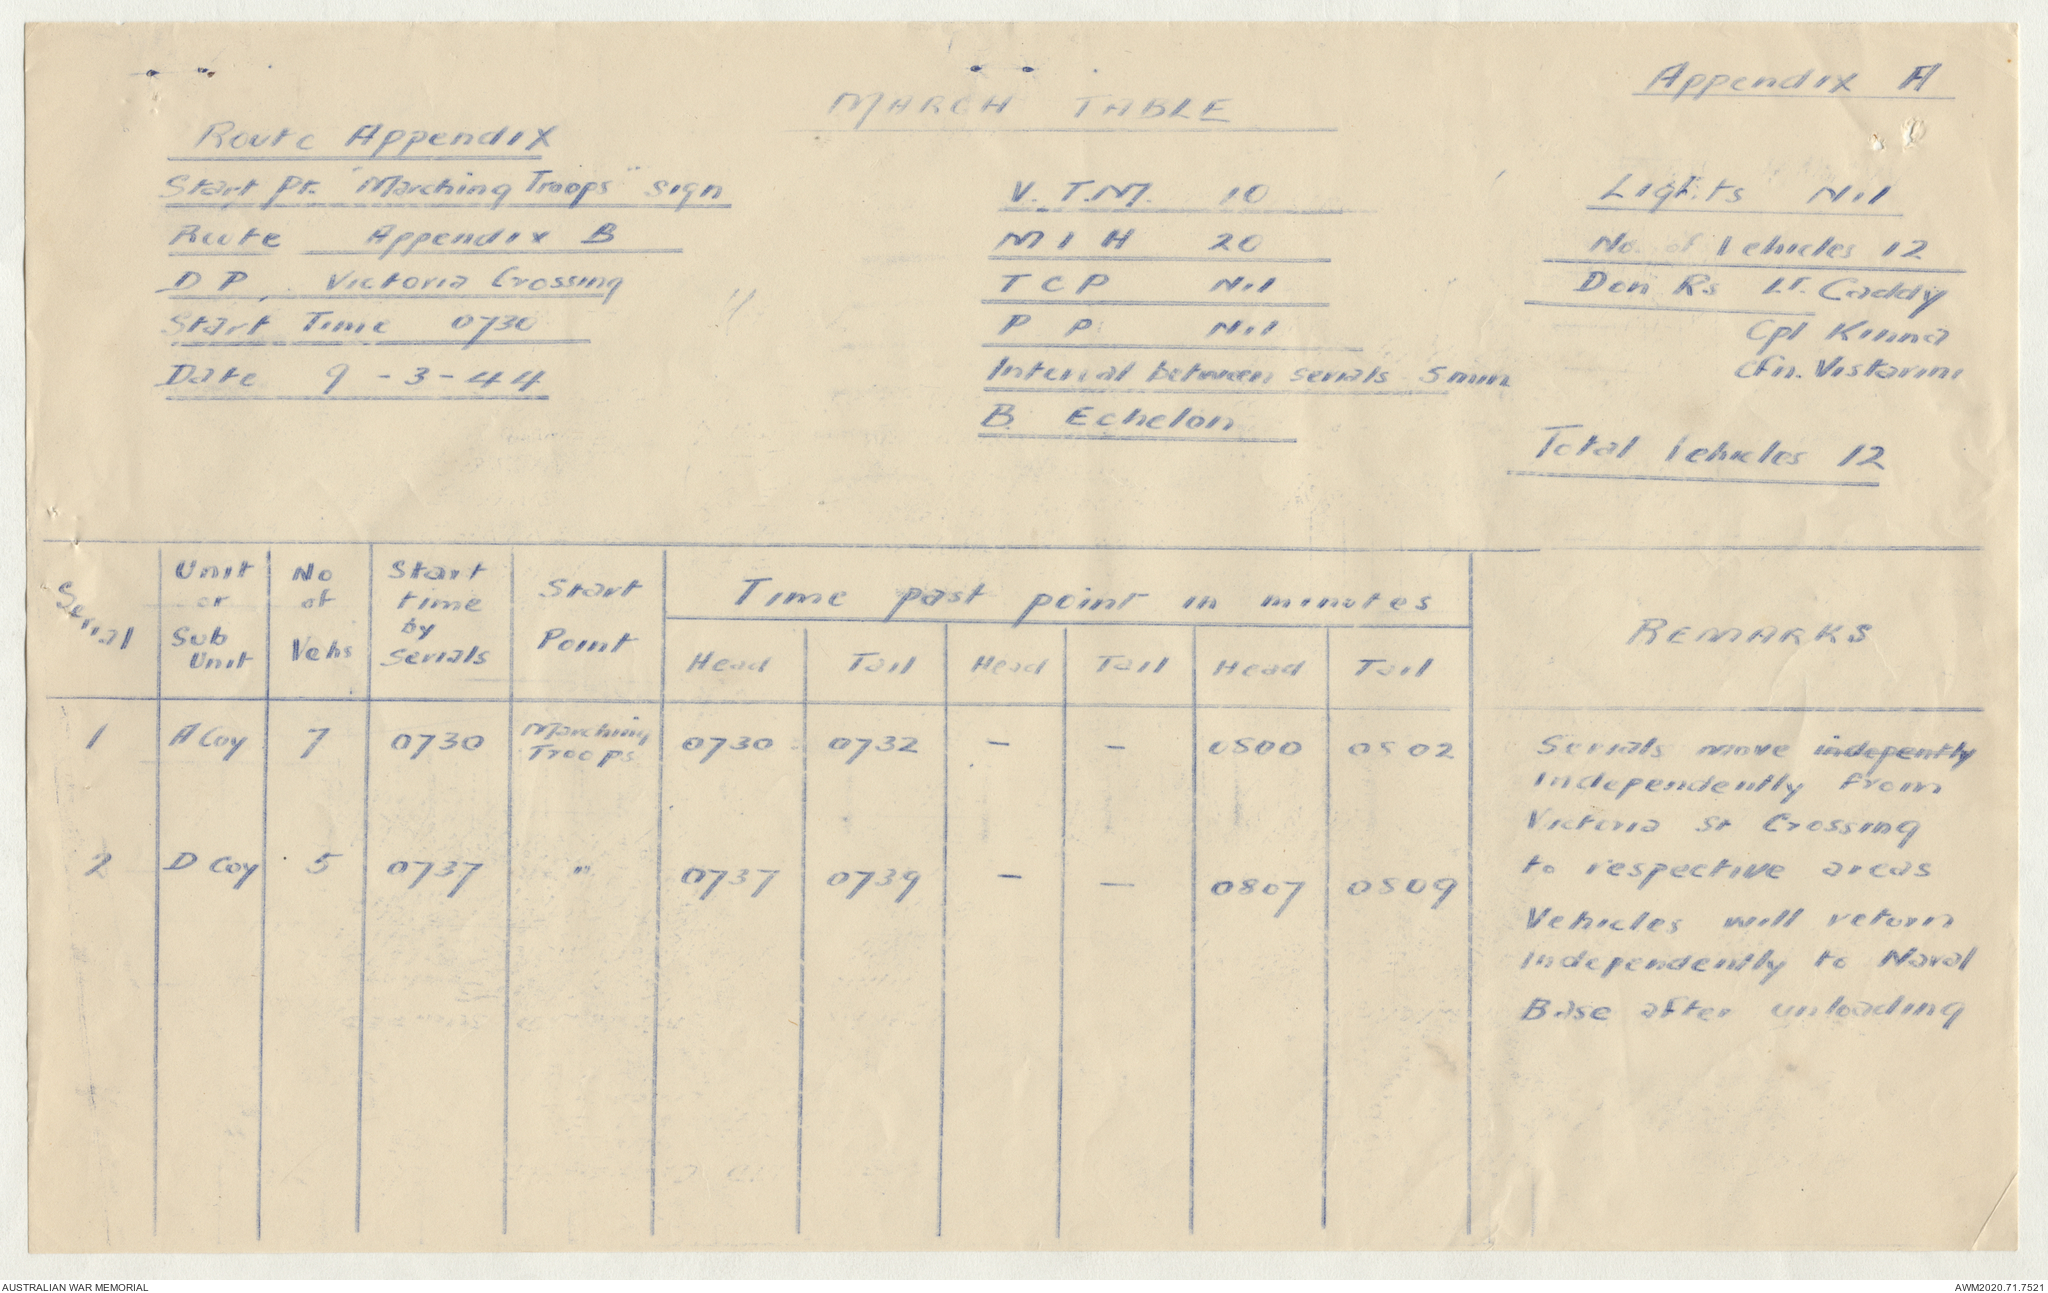 Appendix A
MARCH TABLE
Route Appendix
Start Pt. "Marching Troops" sign
Route Appendix B
D P. Victoria Crossing
Start Time 0730
Date 9-3-44
V.T.M. 10
M I H 20
T C P Nil
P P. Nil
Interval between serials 5 min
B. Echelon
Lights Nil
No. of Vehicles 12
Don Rs Lt. Caddy
Cpl Kinna
Cfn. Vistarini
Total Vehicles 12
Serial
Unit or Sub Unit
No of Vehs
Start time by Serials
Start Point
Time past point in minutes
Head Tail Head Tail Head Tail
REMARKS
1 A Coy 7 0730 Marching Troops 0730 0732 - - 0800 0802
2 D Coy 5 0737 " 0737 0739 - - 0807 0809
Serials move indepently
independently from
Victoria St Crossing
to respective areas
Vehicles will return
independently to Naval
Base after unloading
AUSTRALIAN WAR MEMORIAL
AWM2020.71.7521